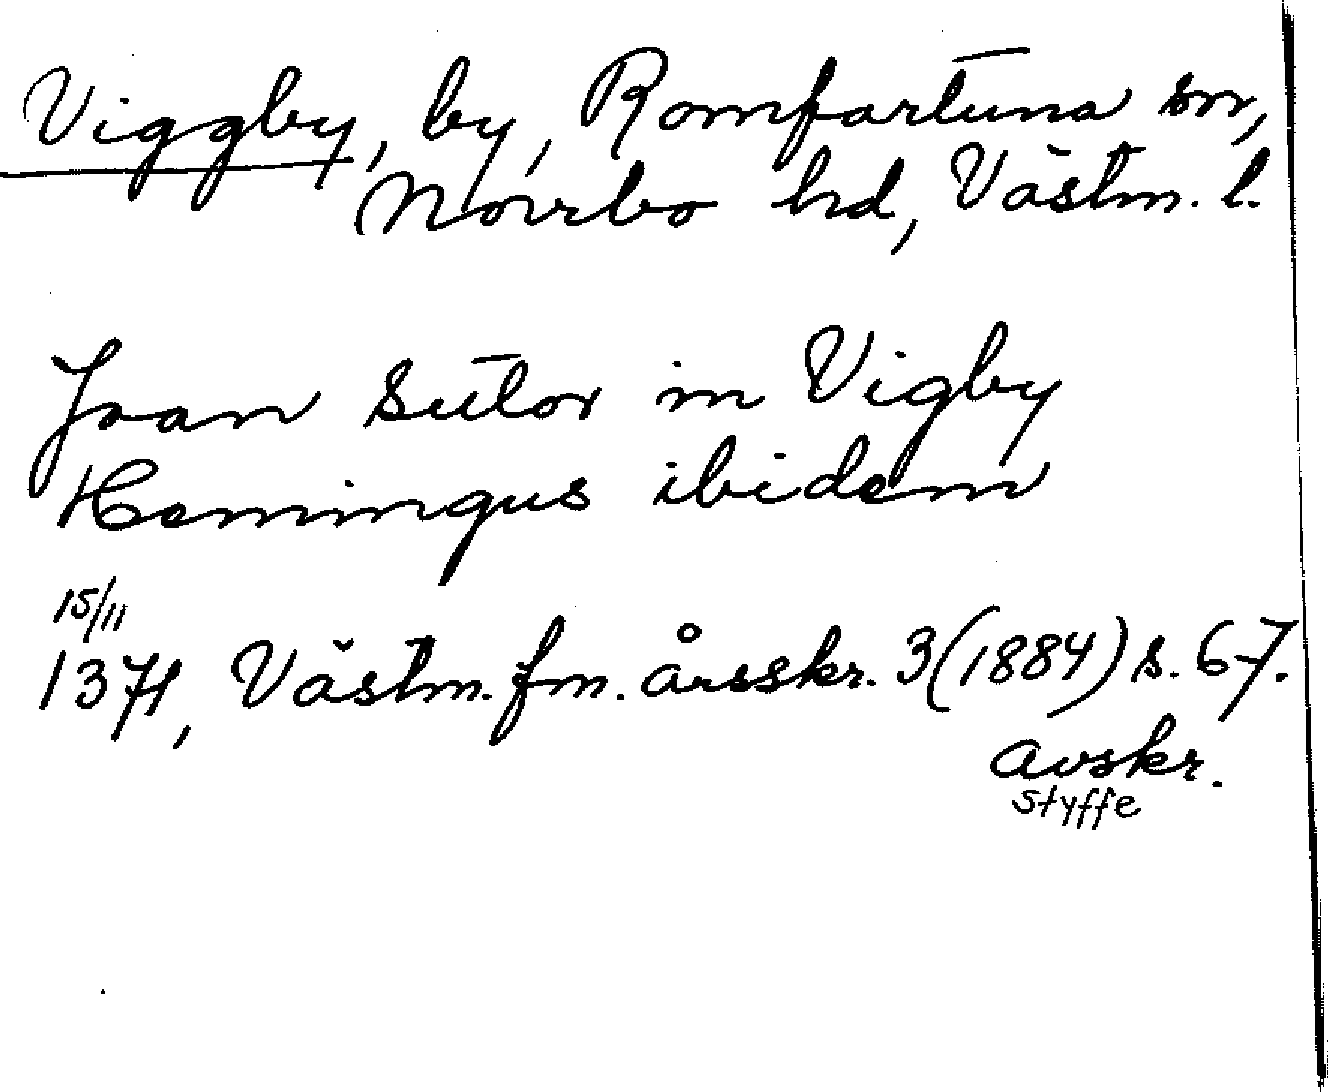 Viggby, by, Romfartuna sn,
Norrbo hd, Västm. l.
Joan Sutor in Vigby
Hemingus ibidem
15/11
1371, Västm. fm. årsskr. 3 (1884) s. 67.
avskr.
Styffe